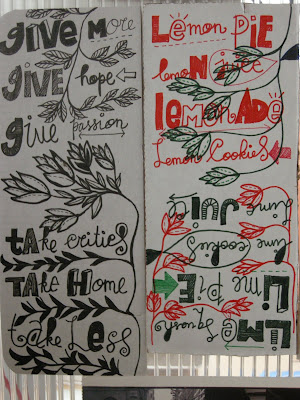 GiVE MOre
GIVE hope
give passion
tAke critics
TAKE Home
take Less
LEmon PiE
lemoN juice
lemoNADE
Lemon CookiES
LiME
Lime PiE
lime cookies
Lime JUICE